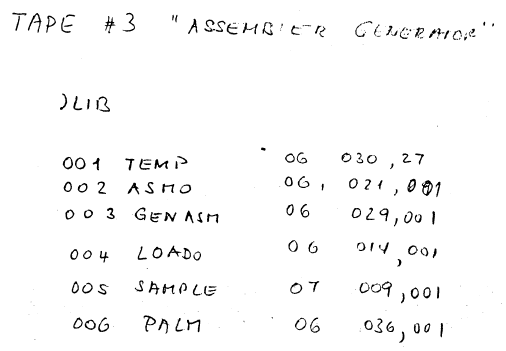 TAPE #3 "ASSEMBLER GENERATOR"
)LIB
001 TEMP 06 030,27
002 ASMO 06, 021,001
003 GENASM 06 029,001
004 LOADO 06 014,001
005 SAMPLE 07 009,001
006 PALM 06 036,001